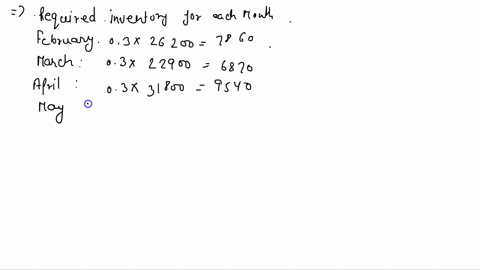 =) Required inventory for each Month.
February. 0.3 x 26200 = 7860.
March: 0.3 x 22900 = 6870
April: 0.3 x 31800 = 9540
May